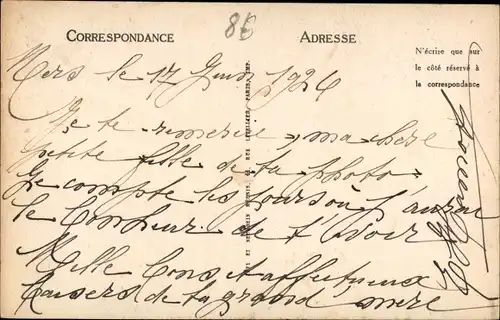 86
CORRESPONDANCE
ADRESSE
N'écrire que sur
le côté réservé à
la correspondance
Mers le 17 Juin 1926
Je te remercie ma chère
petite fille de ta photo
Je compte les jours où j'aurai
le bonheur de t'avoir
Mille bons et affectueux
baisers de ta grand mère